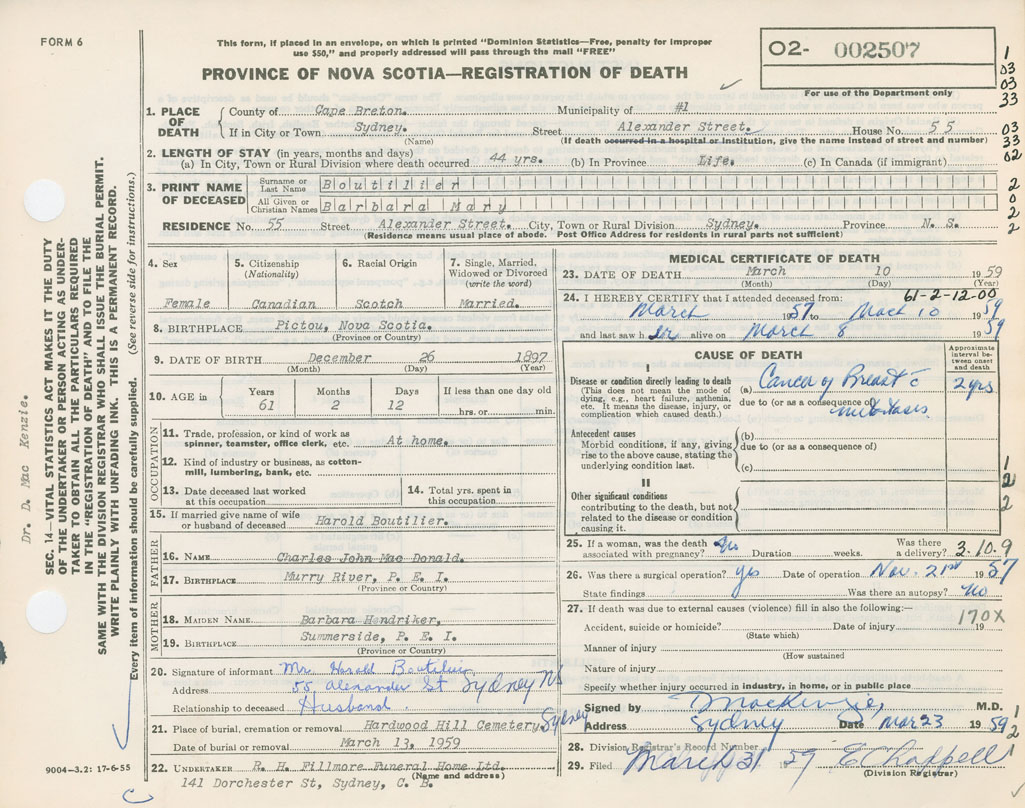 FORM 6
This form, if placed in an envelope, on which is printed "Dominion Statistics—Free, penalty for improper
use $50," and properly addressed will pass through the mail "FREE"
PROVINCE OF NOVA SCOTIA—REGISTRATION OF DEATH
O2- 002507
For use of the Department only
1
03
03
33
03
33
02
2
0
2
2
1. PLACE OF DEATH
County of Cape Breton. Municipality of #1
If in City or Town Sydney. Street Alexander Street. House No. 55
(Name) (If death occurred in a hospital or institution, give the name instead of street and number)
2. LENGTH OF STAY (in years, months and days)
(a) In City, Town or Rural Division where death occurred 44 yrs. (b) In Province Life. (c) In Canada (if immigrant)
3. PRINT NAME OF DECEASED
Surname or Last Name Boutilier
All Given or Christian Names Barbara Mary
RESIDENCE No. 55 Street Alexander Street. City, Town or Rural Division Sydney. Province N. S.
(Residence means usual place of abode. Post Office Address for residents in rural parts not sufficient)
4. Sex
Female
5. Citizenship
(Nationality)
Canadian
6. Racial Origin
Scotch
7. Single, Married, Widowed or Divorced
(write the word)
Married.
8. BIRTHPLACE Pictou, Nova Scotia.
(Province or Country)
9. DATE OF BIRTH December 26 1897
(Month) (Day) (Year)
10. AGE in
Years 61
Months 2
Days 12
If less than one day old
hrs. or min.
OCCUPATION
11. Trade, profession, or kind of work as
spinner, teamster, office clerk, etc. At home.
12. Kind of industry or business, as cotton-
mill, lumbering, bank, etc.
13. Date deceased last worked
at this occupation
14. Total yrs. spent in
this occupation
15. If married give name of wife
or husband of deceased Harold Boutilier.
FATHER
16. NAME Charles John Mac Donald.
17. BIRTHPLACE Murry River, P. E. I.
(Province or Country)
MOTHER
18. MAIDEN NAME Barbara Hendriker.
19. BIRTHPLACE Summerside, P. E. I.
(Province or Country)
20. Signature of informant Mr. Harold Boutilier
Address 55 Alexander St Sydney NS
Relationship to deceased Husband.
21. Place of burial, cremation or removal Hardwood Hill Cemetery Sydney
Date of burial or removal March 13, 1959
22. UNDERTAKER R. H. Fillmore Funeral Home Ltd.
(Name and address)
141 Dorchester St, Sydney, C. B.
MEDICAL CERTIFICATE OF DEATH
23. DATE OF DEATH March 10 1959
(Month) (Day) (Year)
61-2-12-00
24. I HEREBY CERTIFY that I attended deceased from:
March 1957 to Mach 10 1959
and last saw her alive on March 8 1959
CAUSE OF DEATH
Approximate interval between onset and death
I
Disease or condition directly leading to death
(This does not mean the mode of
dying, e.g., heart failure, asthenia,
etc. It means the disease, injury, or
complication which caused death.)
(a) Cancer of Breast c̄ 2 yrs
due to (or as a consequence of) metastases
Antecedent causes
Morbid conditions, if any, giving
rise to the above cause, stating the
underlying condition last.
(b)
due to (or as a consequence of)
(c)
II
Other significant conditions
contributing to the death, but not
related to the disease or condition
causing it.
1
2
2
25. If a woman, was the death
associated with pregnancy? No Duration weeks. Was there a delivery?
3.10.9
26. Was there a surgical operation? yes Date of operation Nov. 21st 1957
State findings Was there an autopsy? No
27. If death was due to external causes (violence) fill in also the following:—
170X
Accident, suicide or homicide? Date of injury 19
(State which)
Manner of injury
(How sustained
Nature of injury
Specify whether injury occurred in industry, in home, or in public place
Signed by MacKenzie, M.D.
Address Sydney Date Mar 23 1959
1
2
28. Division Registrar's Record Number
29. Filed March 31 1959 E Chappell
(Division Registrar)
1
Dr. D. Mac Kenzie.
SEC. 14—VITAL STATISTICS ACT MAKES IT THE DUTY
OF THE UNDERTAKER OR PERSON ACTING AS UNDER-
TAKER TO OBTAIN ALL THE PARTICULARS REQUIRED
IN THE "REGISTRATION OF DEATH" AND TO FILE THE
SAME WITH THE DIVISION REGISTRAR WHO SHALL ISSUE THE BURIAL PERMIT.
WRITE PLAINLY WITH UNFADING INK. THIS IS A PERMANENT RECORD.
Every item of information should be carefully supplied. (See reverse side for instructions.)
9004—3.2: 17-6-55